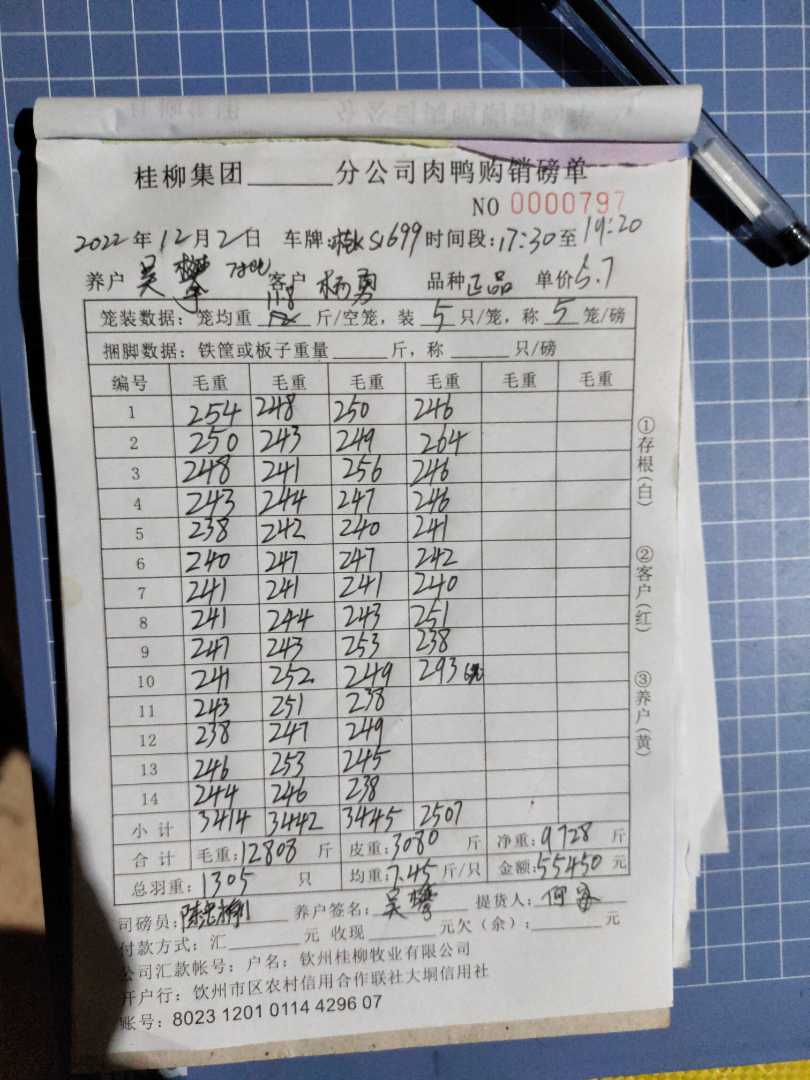 桂柳集团______分公司肉鸭购销磅单
NO 0000797
2022年12月2日 车牌: S1699 时间段:17:30至19:20
养户 吴 客户 杨勇 品种 正品 单价 5.7
11.8
笼装数据: 笼均重 斤/空笼, 装 5 只/笼, 称 5 笼/磅
捆脚数据: 铁筐或板子重量______斤, 称______只/磅
编号 毛重 毛重 毛重 毛重 毛重 毛重
1 254 248 250 246
2 250 243 249 264
3 248 241 256 246
4 243 244 247 246
5 238 242 240 241
6 240 247 247 242
7 241 241 241 240
8 241 244 243 251
9 247 243 253 238
10 241 252 249 293
11 243 251 238
12 238 247 249
13 246 253 245
14 244 246 238
小计 3414 3442 3445 2507
合计 毛重:12808 斤 皮重:3080 斤 净重:9728 斤
总羽重:1305 只 均重:7.45 斤/只 金额:55450 元
司磅员: 养户签名: 吴 提货人: 何
付款方式: 汇______元 收现______元欠(余):______元
公司汇款帐号: 户名: 钦州桂柳牧业有限公司
开户行: 钦州市区农村信用合作联社大垌信用社
账号: 8023 1201 0114 4296 07
①存根(白)
②客户(红)
③养户(黄)